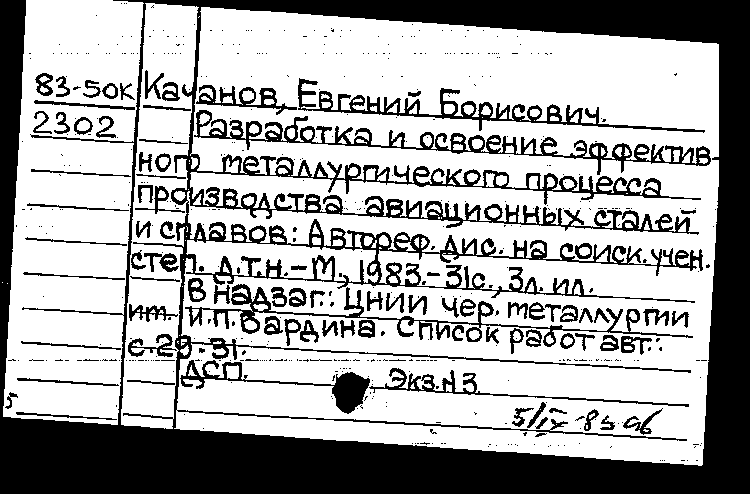 83-50к Качанов, Евгений Борисович.
2302 Разработка и освоение эффектив-
ного металлургического процесса
производства авиационных сталей
и сплавов: Автореф. дис. на соиск. учен.
степ. д.т.н.-М., 1983.-31с., 3л. ил.
В надзаг.: ЦНИИ чер. металлургии
им. И.П.Бардина. Список работ авт.:
с.29-31.
ДСП. Экз.N3
5/IX-83
5